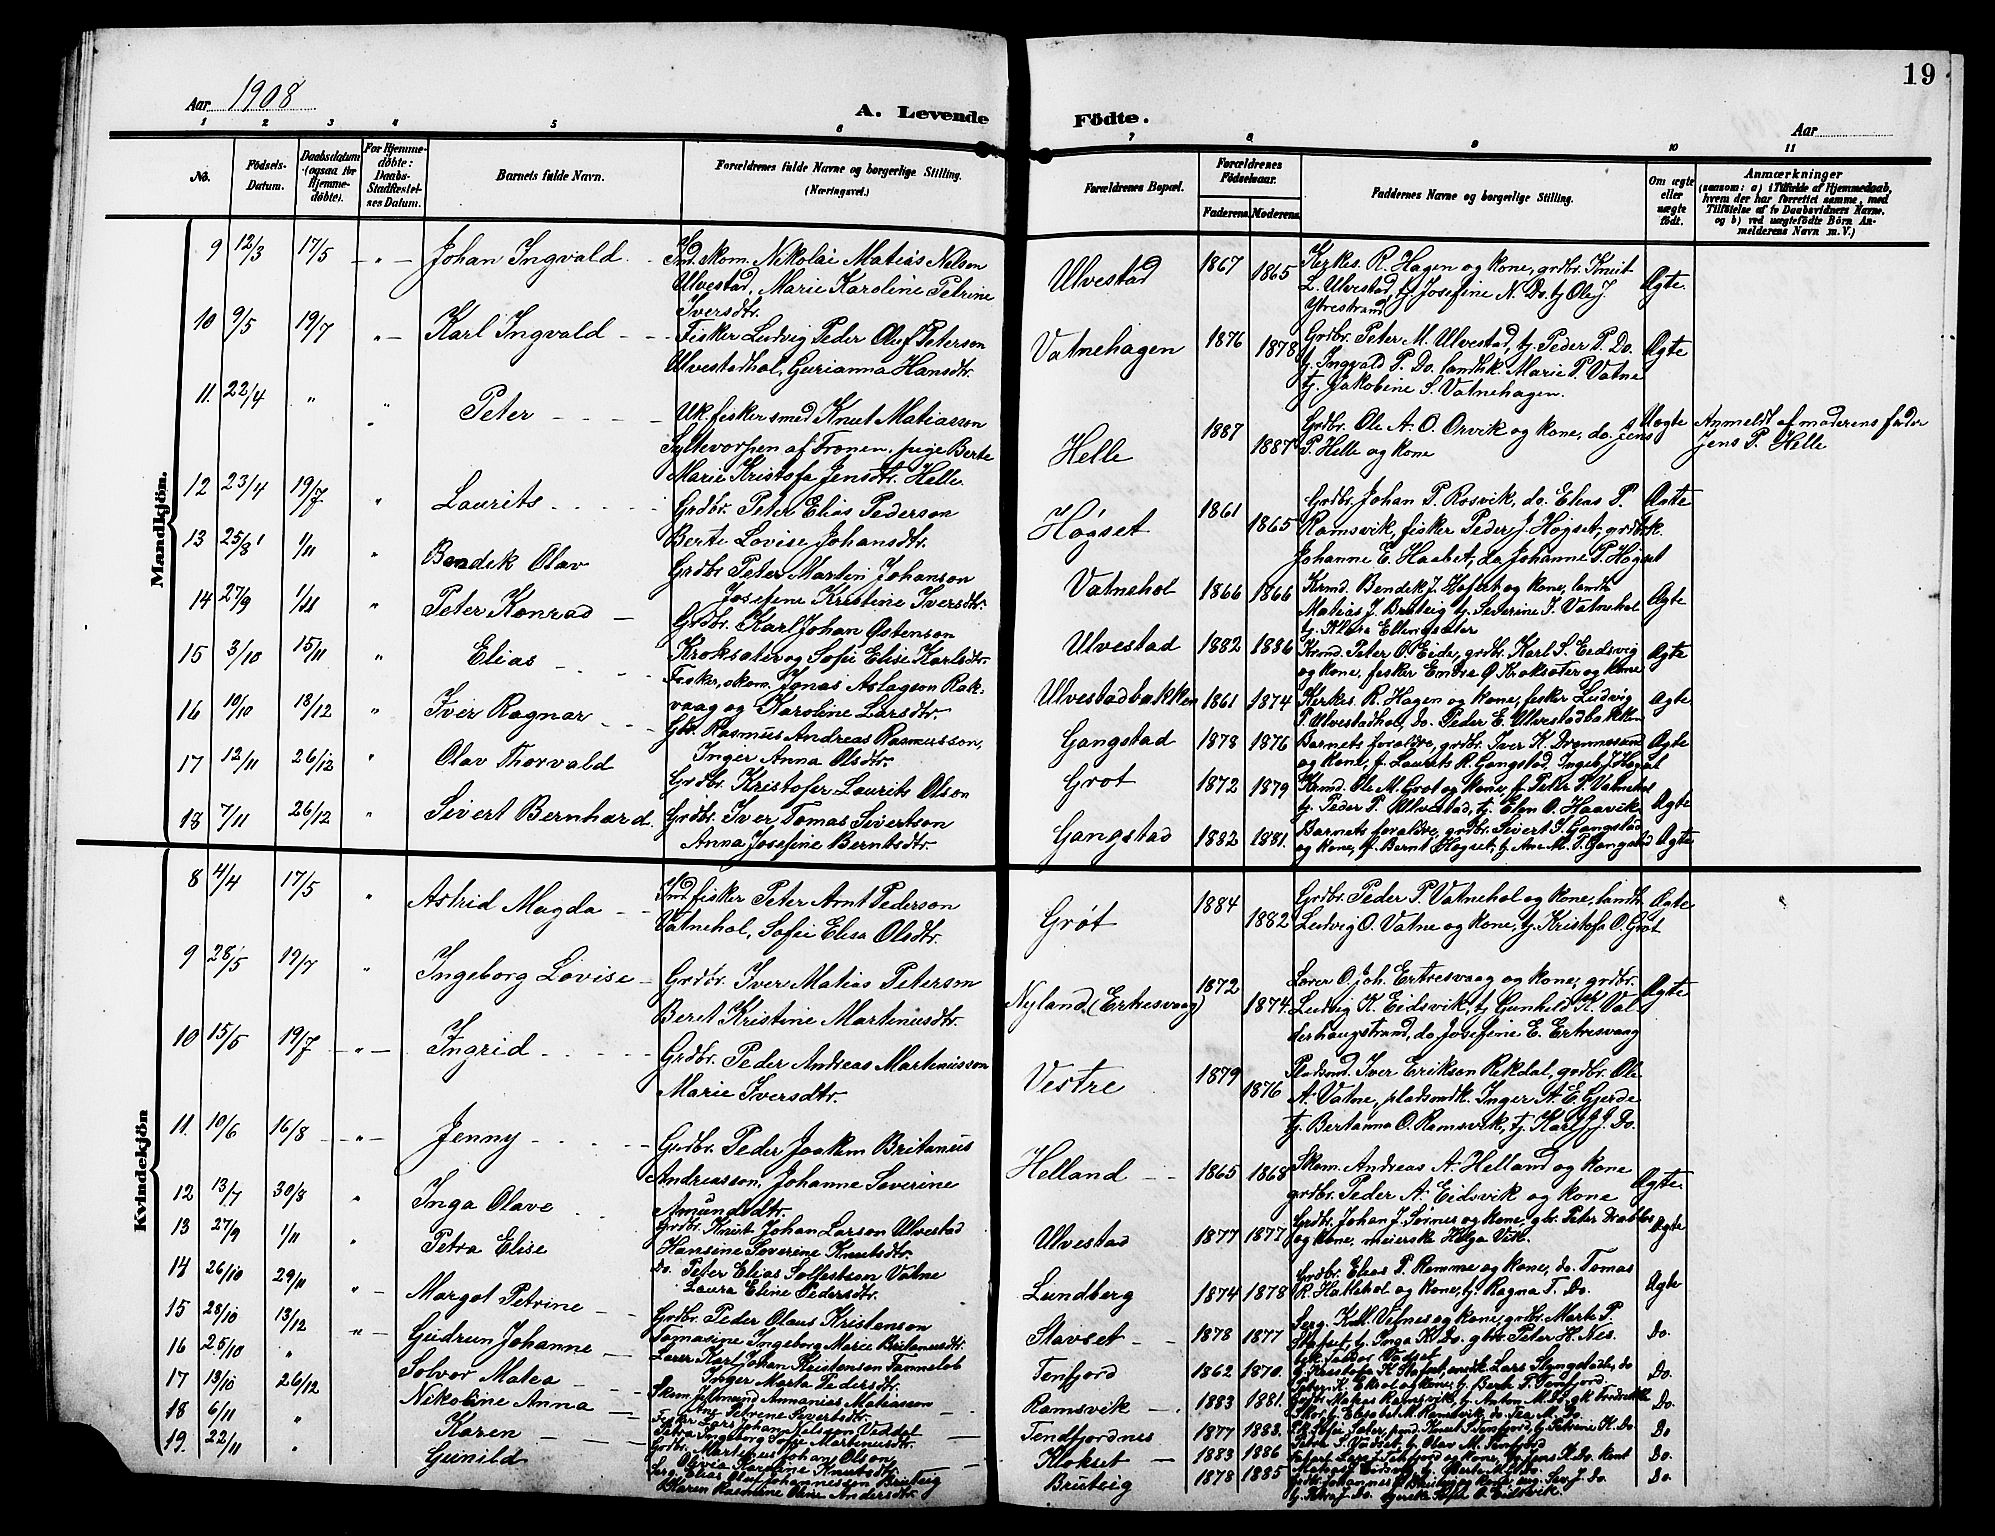 19
Aar 1908
A. Levende Födte.
Aar
1 2 3 4 5 6 7 8 9 10 11
No.
Födsels-Datum.
Daabsdatum (ogsaa for Hjemmedøbte).
For Hjemmedøbte: Daabs-Stadfæstelses Datum.
Barnets fulde Navn.
Forældrenes fulde Navne og borgerlige Stilling. (Næringsvei.)
Forældrenes Bopæl.
Forældrenes Födselsaar.
Faderens. Moderens.
Faddernes Navne og borgerlige Stilling.
Om ægte eller uægte födt.
Anmærkninger
(saasom: a) i Tilfælde af Hjemmedaab, hvem der har forrettet samme, med Tilföielse af to Daabsvidners Navne. og b) ved uægtefödte Börn Anmelderens Navn m. V.)
Mandkjön.
9 12/3 17/5 — „ — Johan Ingvald Ind. skom. Nikolai Matias Nelson
Ulvestad, Marie Karoline Petrine
Iversdtr.
Ulvestad 1867 1865 Kerkes. R. Hagen og kone, grdbr. Knut
L. Ulvestad, tj. Josefine N. Do. tj Ole J.
Ytrestrand Ægte.
10 9/5 19/7 „ — Karl Ingvald — Fisker Ludvig Peder Oluf Peterson
Ulvestadhol, Gurianna Hansdtr.
Vatnehagen 1876 1878 Grdbr. Peter M. Ulvestad, tj. Peder P. Do.
tj. Ingvald P. Do. landhk. Marie P. Vatne
tj. Jakobine S. Vatnehagen. Ægte
11. 22/4 „ „ Peter — Uk. fisker smed Knut Matiasson
Syltevorpen af Tronen, pige Berte
Marie Kristofa Jensdtr. Helle
Helle 1887 1887 Grdbr. Ole A. O. Orvik og kone, do. Jens
P. Helle og kone Uægte Anmeldt af moderens fader
Jens P. Helle
12 23/4 19/7 „ Laurits Grdbr. Peter Elias Pederson
Berte Lovise Johansdtr.
Høgset 1861 1865 Grdbr. Johan P. Rosvik, do. Elias P.
Ramsvik, fisker Peder J. Høgset, grdbrk.
Johanne E. Haabet, do Johanne P. Høgset Ægte
13 25/8 1/11 „ Bendik Olav Grdbr. Peter Martin Johanson
Josefine Kristine Iversdtr.
Vatnehol 1866 1866 Krmd. Bendik J. Hofelt og kone, landh
Matias J. Bruteig tj. Severine I. Vatnehol
tj. Klara Ellingsæter Ægte
14 27/9 1/11 „ Peter Konrad — Grdbr. Karl Johan Østenson
Kroksæter og Sofie Elise Karlsdtr.
Ulvestad 1882 1886 Krmd. Peter O. Eide, grdbr. Karl S. Eidsvig
og kone, fisker Endre O Kroksæter og kone Ægte
15 3/10 15/11 „ Elias Fisker, skom. Jonas Aslagson Rakvaag og Karoline Larsdtr.
Ulvestadbakken 1861 1874 Kerkes. R. Hagen og kone, fisker Ludvig
P. Ulvestadhol, do. Peder E. Ulvestadbakken Ægte
16 10/10 13/12 „ Iver Ragnar Gbr. Rasmus Andreas Rasmusson,
Inger Anna Olsdtr.
Gangstad 1878 1876 Barnets forældre, grdbr. Iver K. Dronnesund
og kone, f. Laurits R. Gangstad, Ingeb. J. Høgset Ægte
17 12/11 26/12 „ Olav Thorvald Grdbr. Kristofer Laurits Olson
Grøt 1872 1879 Krmd. Ole M. Grøt og kone, f. Peter P. Vatnehol
tj. Peder P. Ulvestad, tj. Elen O. Haavik Ægte
18 7/11 26/12 „ Sivert Bernhard. Grdbr. Iver Tomas Sivertson
Anna Josefine Berntsdtr.
Gangstad 1882 1881. Barnets forældre, grdbr. Sivert S. Gangstad
og kone, f. Bernt Høgset, tj. Ane M. P. Gangstad Ægte
Kvindekjön
8 4/4 17/5 „ Astrid Magda — Ind. fisker Peter Arnt Pederson
Vatnehol, Sofie Elisa Olsdtr.
Grøt 1884 1882 Grdbr. Peder P. Vatnehol og kone, landh.
Ludvig O. Vatne og kone, tj. Kristofa O. Grøt Ægte
9 28/5 19/7 „ Ingeborg Lovise — Grdbr. Iver Matias Peterson
Beret Kristine Martinusdtr.
Nyland, (Erkesvaag) 1872 1874 Lærer O. Joh. Ertresvaag og kone, grdbr.
Ludvig K. Eidsvik, tj. Gunhild K. Valderhaugstrand, do Josefine E. Ertresvaag Ægte
10 15/5 19/7 — „ — Ingrid Grdbr. Peder Andreas Martinusson
Marie Iversdtr.
Vestre 1879 1876 Pladsmd. Iver Erikson Rekdal, grdbr. Ole
A. Vatne, pladsmdk. Inger A. E. Gjerde
tj. Bertanna O. Ramsvik, tj. Karl J. J. Do.
11. 10/6 16/8 — „ — Jenny Grdbr. Peder Joakim Britanus
Andreasson, Johanne Severine
Amundsdtr.
Helland 1865 1868 Skom. Andreas A. Helland og kone
grdbr. Peder A. Eidsvik og kone Ægte.
12 13/7 30/8 „ Inga Olave Grdbr. Knut Johan Larson Ulvestad
Hansine Severine Knutsdtr.
Ulvestad 1877 1877 Grdbr. Johan J. Sørnes og kone, gbr. Peter Drabløs
og kone, meierske Helga Vik. Ægte
13 27/9 1/11 „ Petra Elise Do. Peter Elias Solfestson Vatne
Laura Eline Pedersdtr.
Lundberg 1874 1878 Grdbr. Elias P. Ramme og kone, do. Tomas
R. Hatlehol og kone, tj. Ragna T. Do. Ægte
14 26/10 29/11 „ — Margot Petrine — Grdbr. Peder Olaus Kristenson
Tomasine Ingeborg Marie Britanusdtr.
Slavset — 1878 1877 Serg. K. M. Vefnes og kone, grdbr. Marte P.
tj. Inga K. Do. gbr. Peter H. Nes. Do.
15 28/10 13/12 „ — Gudrun Johanne — Lærer Karl Johan Kristenson
Inger Marta Pedersdtr.
Tenfjord 1862 1870. Do.
16 25/10 „ Solvor Matea — Skom. Annanias Matiasson
Ane Petrine Sivertsdtr.
Ramsvik — 1883 1881. Do.
17 13/10 26/12 Nikoline Anna — Fisker Lars Johan Nelsson
Petra Ingeborg Martinusdtr.
Tendfjordnes 1877 1883. Do
18 6/11 „ Karen — Grdbr. Martinus Johan Olson
Olivia Karoline Knutsdtr.
Klokset — 1883 1886 Do.
19. 22/11 „ Gunild Serg. Elias Oluf Johannesson Bruteig
Karen Rasmine Oline Andersdtr.
Bruteig 1878 1885 Do.